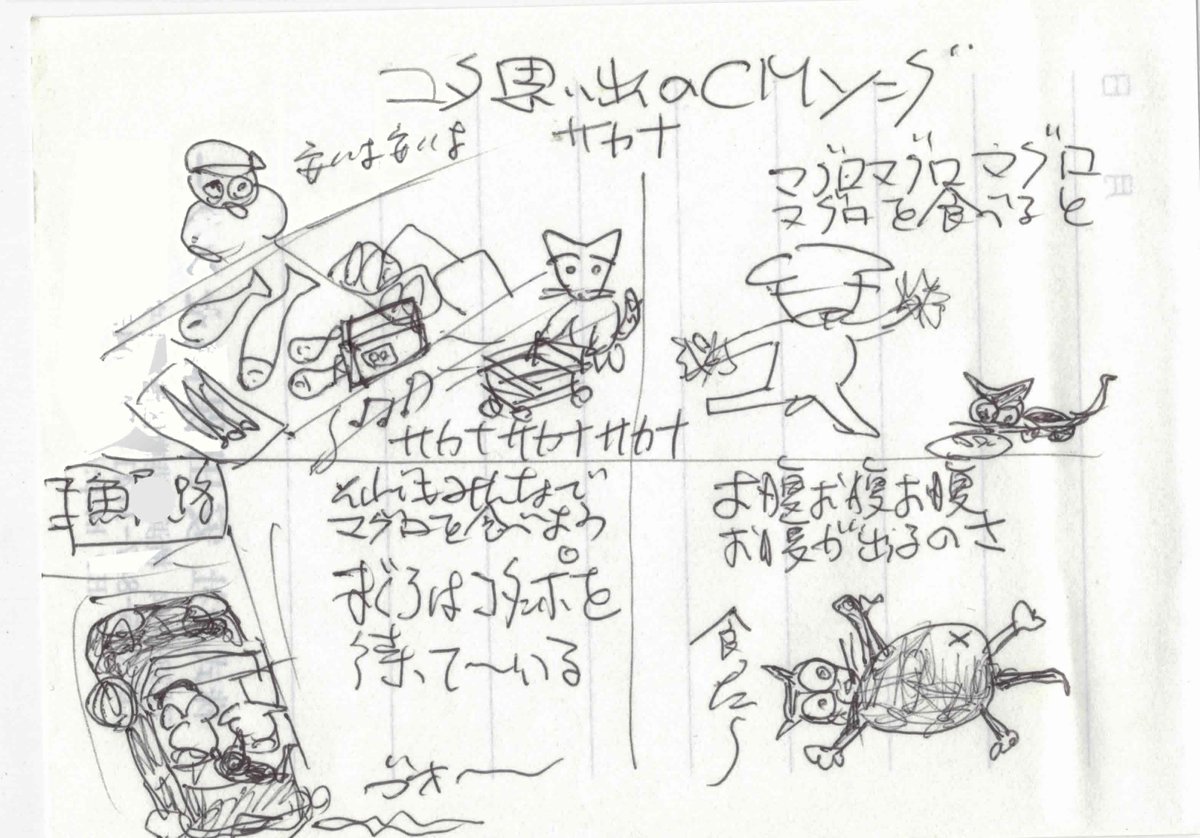 コタ思い出のCMソング
安いは安いは
サカナ
サカナサカナサカナ
マグロマグロマグロ
マグロを食べると
魚
路
マグロを食べよう。
まぐろはコタンポを
待って〜いる
お腹お腹お腹
お腹が出るのさ
食った〜
日
月